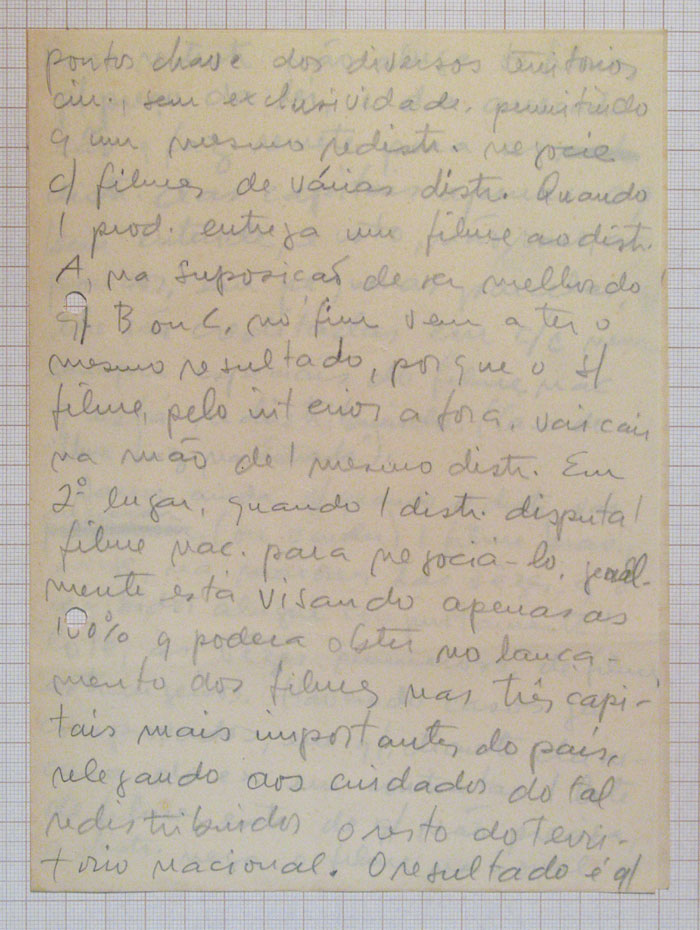 pontos chave dos diversos territorios
cin., sem exclusividade, permitindo
q um mesmo redistr. negocie
c/ filmes de várias distr. Quando
1 prod. entrega um filme ao distr.
A, na suposição de ser melhor do
q/ B ou C, no fim vem a ter o
mesmo resultado, porque o s/
filme, pelo interior a fora, vai cair
na mão de 1 mesmo distr. Em
2º lugar, quando 1 distr. disputa 1
filme nac. para negociá-lo, geral-
mente está visando apenas os
100% q poderá obter no lança-
mento dos filmes nas três capi-
tais mais importantes do país,
relegando aos cuidados do tal
redistribuidor o resto do terri-
torio nacional. O resultado é q/